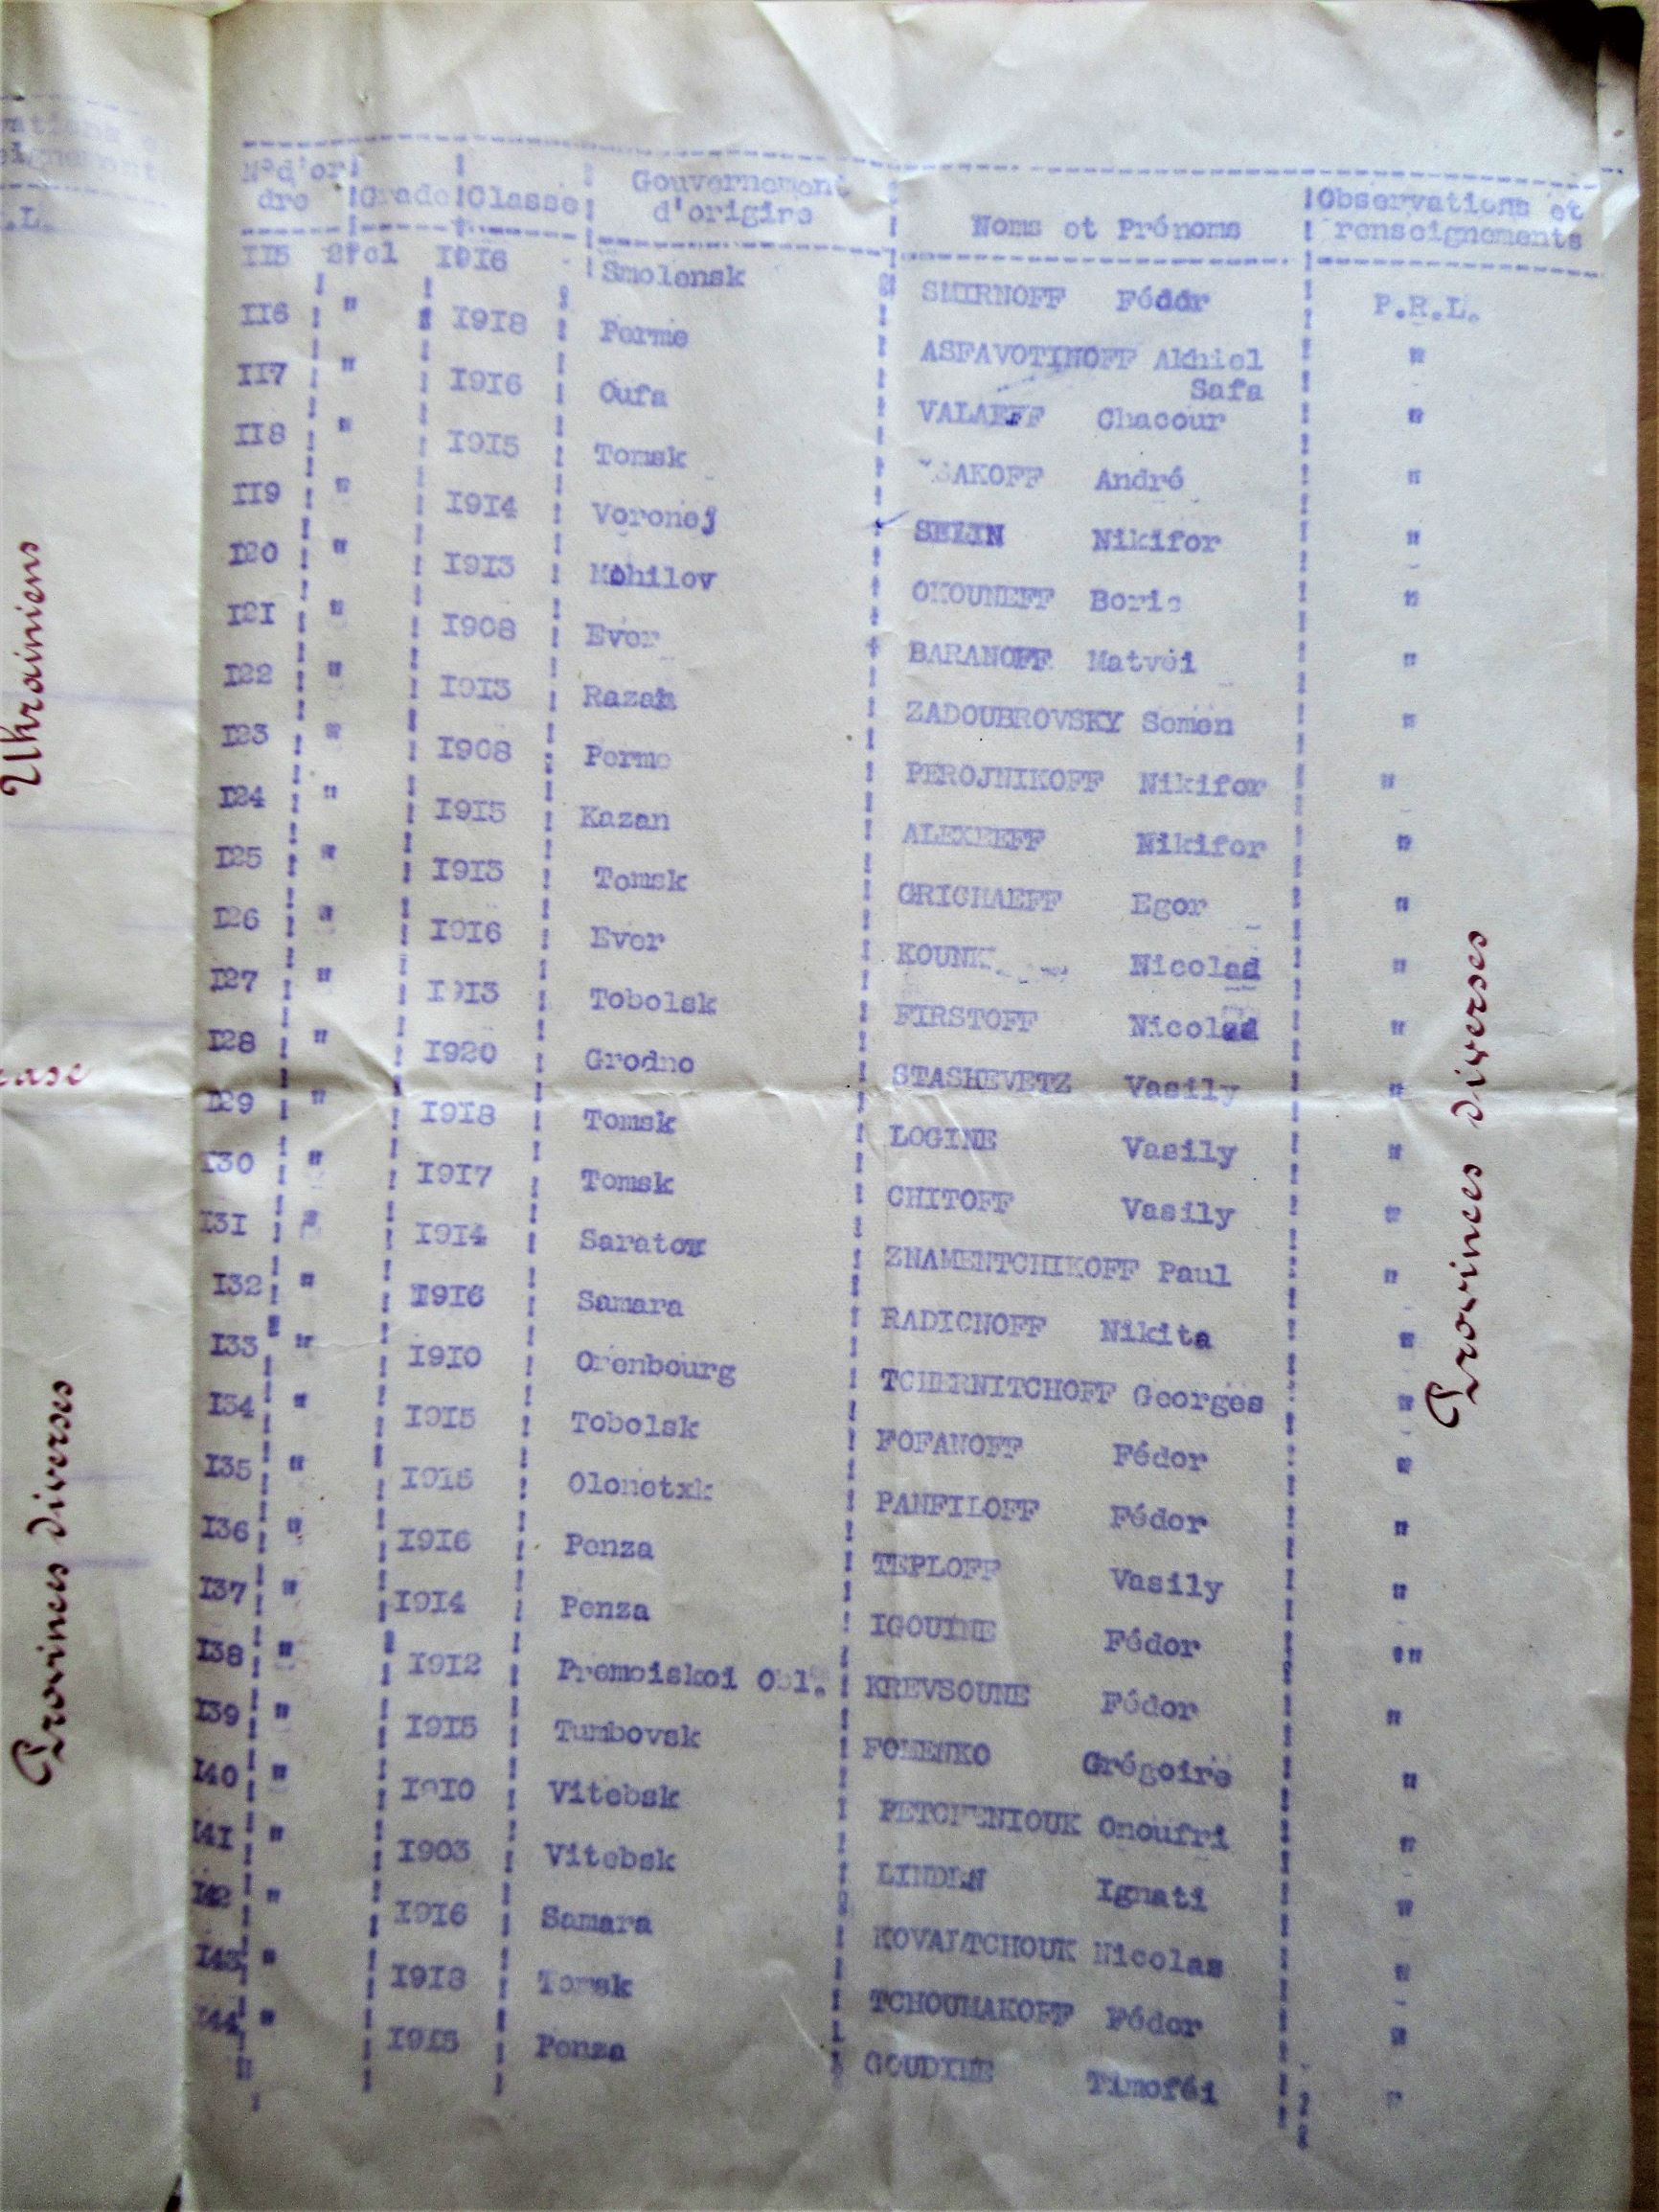 Ukrainiens
Provinces diverses
N°d'or
dre Grade Classe Gouvernement
d'origine Noms et Prénoms Observations et
renseignements
II5 Stol I9I6 Smolensk SMIRNOFF Fédor P.R.L.
II6 " I9I8 Perme ASFAVOTINOFF Akhiel
Safa "
II7 " I9I6 Oufa VALAEFF Chacour "
II8 " I9I5 Tomsk André "
II9 " I9I4 Voronej SELIN Nikifor "
I20 " I9I3 Mohilov OKOUNEFF Boris "
I2I " I908 Ever BARANOFF Matvéi "
I22 " I9I3 Razan ZADOUBROVSKY Semen "
I23 " I908 Perme PEROJNIKOFF Nikifor "
I24 " I9I5 Kazan ALEXEEFF Nikifor "
I25 " I9I3 Tomsk GRICHAEFF Egor "
I26 " I9I6 Ever Nicolas "
I27 " I9I3 Tobolsk FIRSTOFF Nicolas "
I28 " I920 Grodno STASHEVETZ Vasily "
I29 " I9I8 Tomsk LOGINE Vasily "
I30 " I9I7 Tomsk CHITOFF Vasily "
I3I " I9I4 Saratow ZNAMENTCHIKOFF Paul "
I32 " I9I6 Samara RADIONOFF Nikita "
I33 " I9I0 Orenbourg TCHERNITCHOFF Georges "
I34 " I9I5 Tobolsk FOFANOFF Fédor "
I35 " I9I5 Olonetxk PANFILOFF Fédor "
I36 " I9I6 Penza TEPLOFF Vasily "
I37 " I9I4 Penza IGOUINE Fédor "
I38 " I9I2 Premoiskoi Obl. KREVSOUNE Fédor "
I39 " I9I5 Tumbovsk FOMENKO Grégoire "
I40 " I9I0 Vitebsk PETCHENIOUK Onoufri "
I4I " I903 Vitebsk LINDEN Ignati "
I42 " I9I6 Samara KOVALTCHOUK Nicolas "
I43 " I9I8 Tomsk TCHOUMAKOFF Fédor "
I44 " I9I5 Penza GOUDINE Timoféi "
Provinces diverses